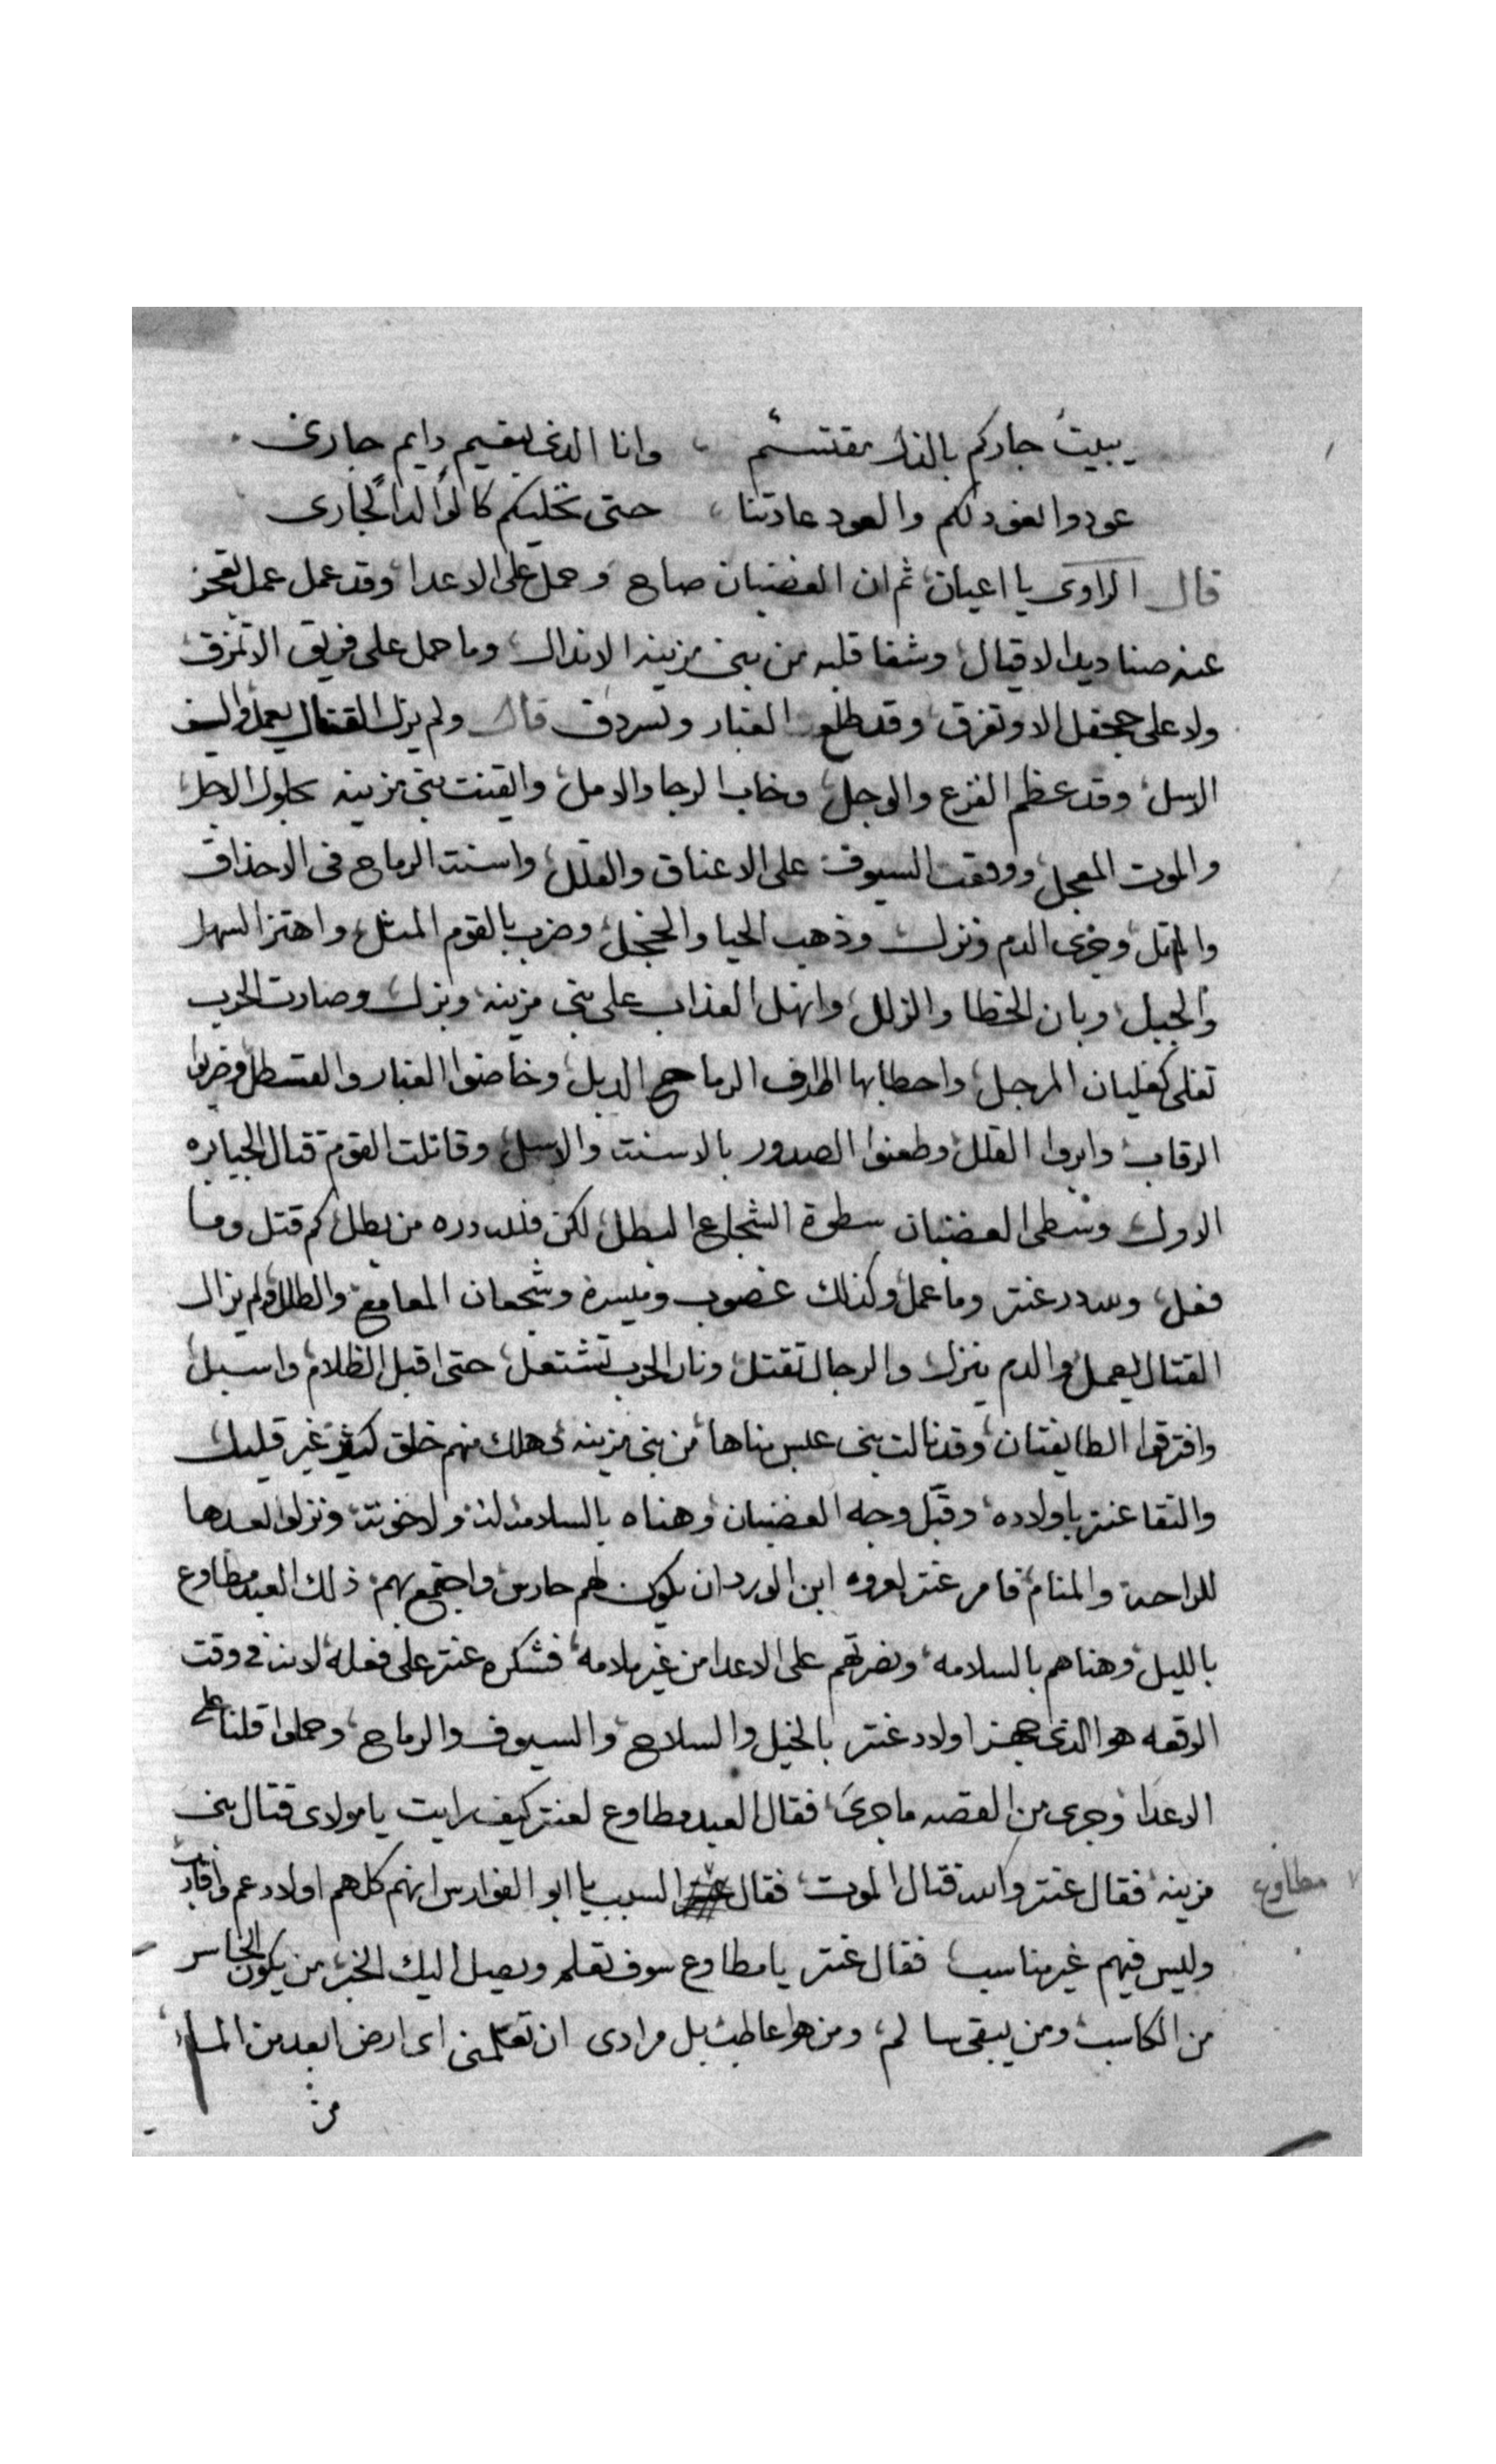 يبيت جاركم بالذل مقتسم ، وانا الذى يقيم دايم جارى
عودوا نعود لكم والعود عادتنا ، حتى نخليكم كالوا لدا لجارى
قال الراوى يا اعيان ثم ان الغضبان صاح وحمل على الاعدا وقد عمل عمل تعجز
عنه صناديد الاقيال وشفا قلبه من بنى مزينه الاندال وما حمل على فريق الا تمزق
ولا على جحفل الا وتفرق وقد طلع الغبار وتسردق قال ولم يزل القتال يعمل والسيف
الاسل وقد عظم الفزع والوجل وخاب الرجا والامل وايقنت بنى مزينه بحلول الاجل
والموت المعجل ووقعت السيوف على الاعناق والقلل واسنت الرماح فى الاحداق
والمقل وجرى الدم ونزل وذهب الحيا والخجل وضرب بالقوم المثل واهتز السهل
والجبل وبان الخطا والزلل وانهل العذاب على بنى مزينه ونزل وصارت الحرب
تغلى كغليان المرجل واحطابها اطراف الرماح الدبل وخاضوا الغبار والقسطل وضربوا
الرقاب وابروا القلل وطعنوا الصدور بالاسنت والاسل وقاتلت القوم قتال الجبابره
الاول وسطى الغضبان سطوة الشجاع البطل لكن فلله دره من بطل كم قتل وما
فعل ولله در عنتر وما عمل وكذلك غصوب وميسرة وشجعان المعامع والطلل ولم يزال
القتال يعمل والدم ينزل والرجال تقتل ونار الحرب تشتعل حتى اقبل الظلام واسبل
وافترقوا الطايفتان وقد نالت بنى عبس مناها من بنى مزينه وهلك منهم خلق كثير غير قليل
والتقا عنتر باولاده وقبل وجه الغضبان وهناه بالسلامه له ولاخوته ونزلوا بعدها
للراحه والمنام فامر عنتر لعروه ابن الورد ان يكون لهم حارس واجتمع بهم ذلك العبد مطاوع
بالليل وهناهم بالسلامه ونصرتهم على الاعدا من غير ملامه فشكره عنتر على فعله لانه فى وقت
الوقعه هو الذى جهز اولاد عنتر بالخيل والسلاح والسيوف والرماح وحملوا قلنا على
الاعدا وجرى من القصه ما جرى فقال العبد مطاوع لعنتر كيف رايت يا مولاى قتال بنى
مزينه فقال عنتر والله قتال الموت فقال السبب يا ابو الفوارس انهم كلهم اولاد عم واقارب
مطاوع
وليس فيهم غير مناسب فقال عنتر يا مطاوع سوف تعلم ويصل اليك الخبر من يكون الخاسر
من الكاسب ومن يبقى سالم ومن هوا عاطب بل مرادى ان تعلمنى اى ارض ابعد من المسا
من